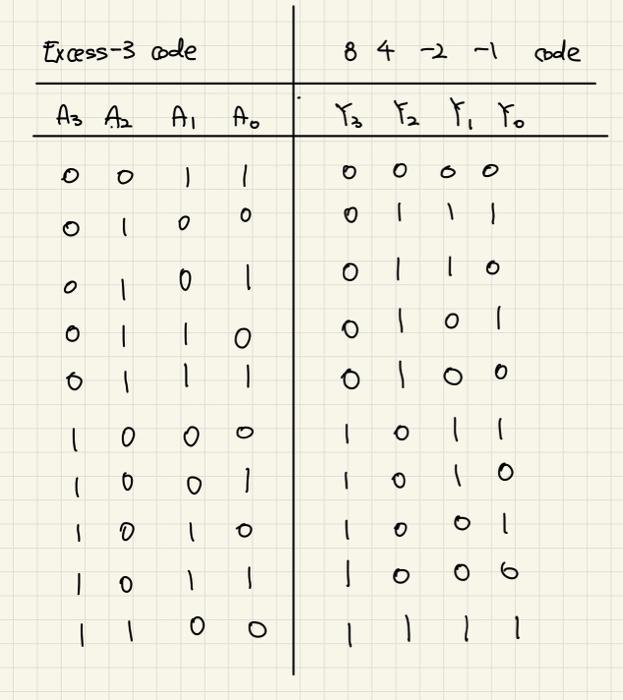 Excess-3 code 8 4 -2 -1 code
A3 A2 A1 A0 Y3 Y2 Y1 Y0
0 0 1 1 0 0 0 0
0 1 0 0 0 1 1 1
0 1 0 1 0 1 1 0
0 1 1 0 0 1 0 1
0 1 1 1 0 1 0 0
1 0 0 0 1 0 1 1
1 0 0 1 1 0 1 0
1 0 1 0 1 0 0 1
1 0 1 1 1 0 0 0
1 1 0 0 1 1 1 1